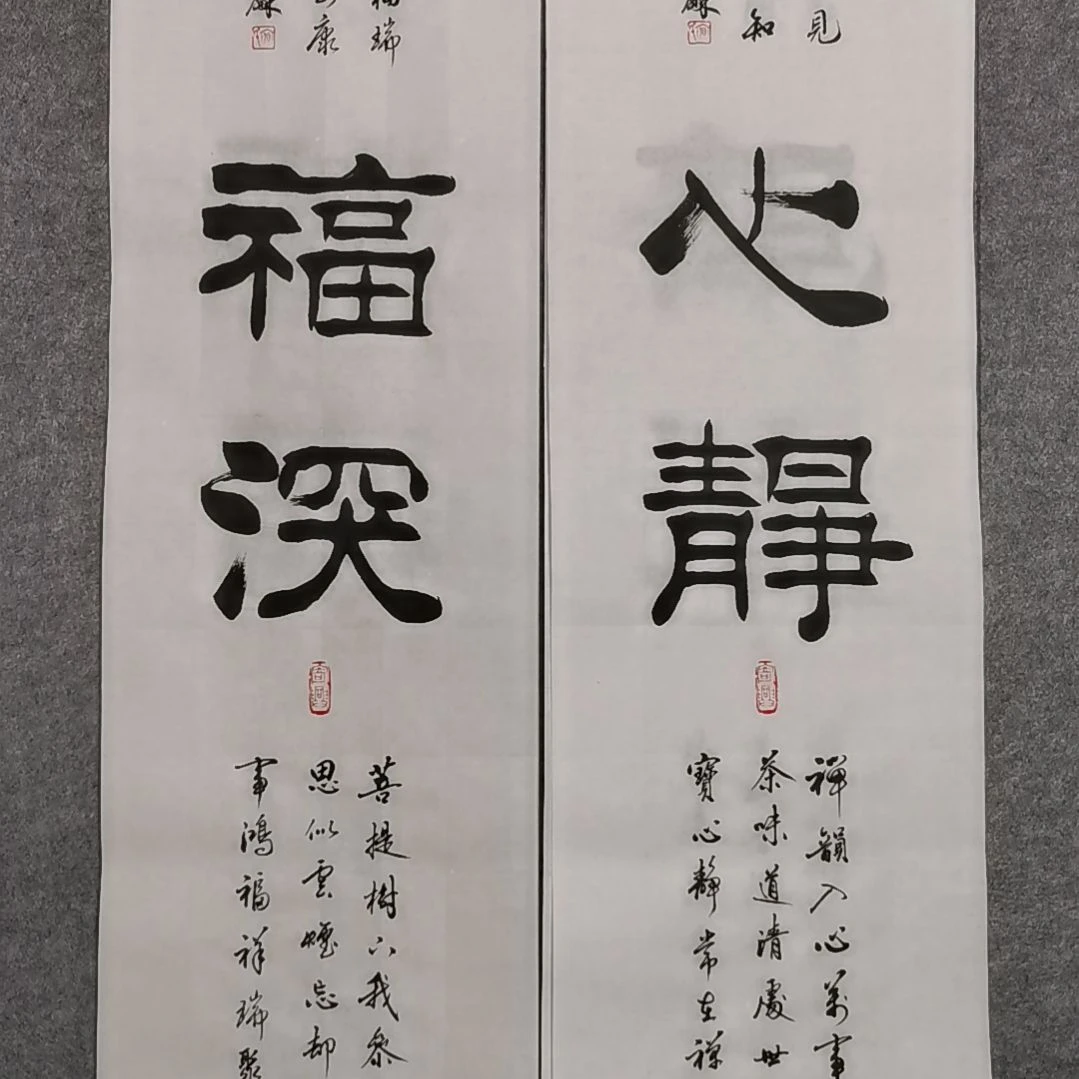 見
知
心靜
禪韻入心萬事
茶味道清處世
寶心靜常在禪
瑞
康
福深
菩提樹下我參
思似雲煙忘却
事鴻福祥瑞聚